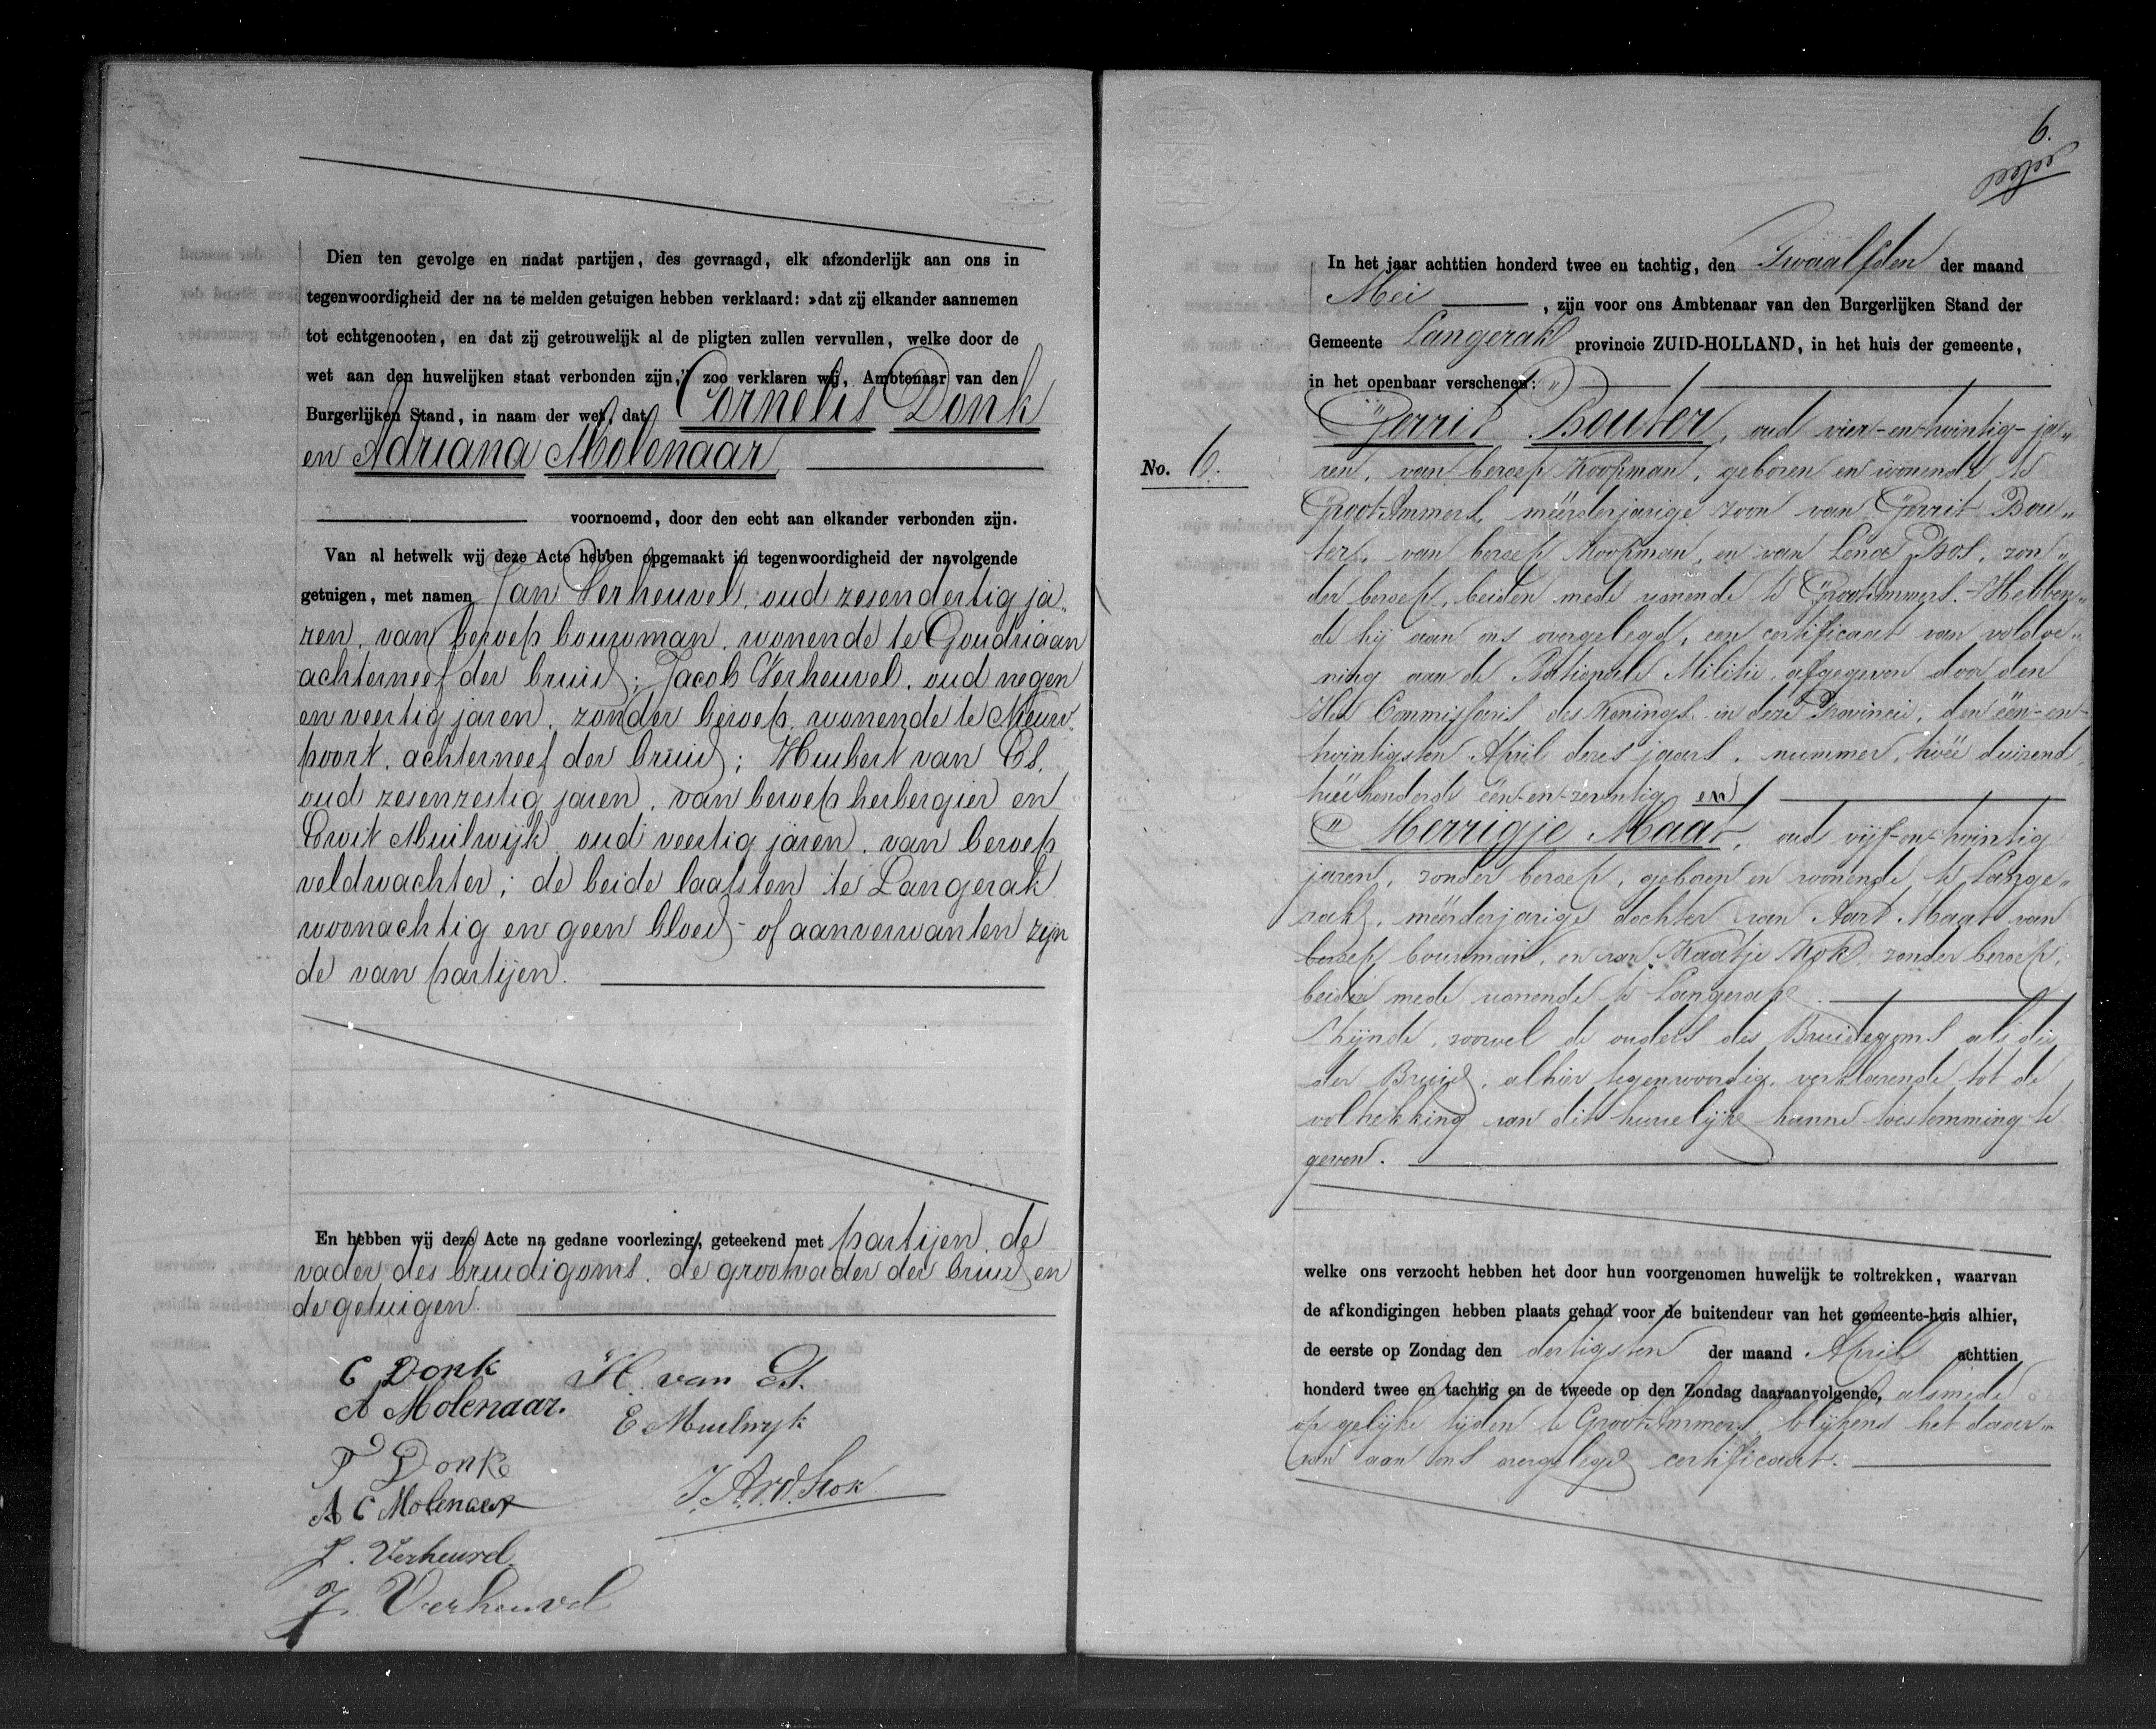 Dien ten gevolge en nadat partijen, des gevraagd, elk afzonderlijk aan ons in
tegenwoordigheid der na te melden getuigen hebben verklaard: »dat zij elkander aannemen
tot echtgenooten, en dat zij getrouwelijk al de pligten zullen vervullen, welke door de
wet aan den huwelijken staat verbonden zijn," zoo verklaren wij, Ambtenaar van den
Burgerlijken Stand, in naam der wet, dat Cornelis Donk
en Adriana Molenaar
voornoemd, door den echt aan elkander verbonden zijn.
Van al hetwelk wij deze Acte hebben opgemaakt in tegenwoordigheid der navolgende
getuigen, met namen Jan Verheuvel, oud zesendertig ja„
ren, van beroep bouwman, wonende te Goudriaan
achterneef der bruid; Jacob Verheuvel, oud negen
en veertig jaren, zonder beroep, wonende te Nieuw„
poort, achterneef der bruid; Huibert van Es,
oud zesenzestig jaren, van beroep herbergier en
Evert Muilwijk, oud veertig jaren, van beroep
veldwachter; de beide laatsten te Langerak
woonachtig en geen bloed- of aanverwanten zijn
de van partijen.
En hebben wij deze Acte na gedane voorlezing, geteekend met partijen, de
vader des bruidigoms, de grootvader der bruid en
de getuigen.
C Donk H. van Es.
A Molenaar. E Muilwyk
P Donk
A C Molenaar
J. Verheuvel
J. Verheuvel
6.
In het jaar achttien honderd twee en tachtig, den Twaalfden der maand
Mei, zijn voor ons Ambtenaar van den Burgerlijken Stand der
Gemeente Langerak provincie ZUID-HOLLAND, in het huis der gemeente,
in het openbaar verschenen:
Gerrit Bouter, oud vier-en-twintig-ja„
No. 6. ren, van beroep Koopman, geboren en wonende te
Groot-Ammers, meerderjarige zoon van Gerrit Bou„
ter, van beroep Koopman, en van Lena Bos, zon„
der beroep, beiden mede wonende te Groot-Ammers. Hebben„
de hij aan ons overgelegd, een certificaat van voldoe„
ning aan de Nationale Militie, afgegeven door den
Heer Commissaris des Konings in deze Provincie, den een-en-
twintigsten April dezes jaars, nummer, twee duizend
twee honderd een-en-zeventig en
Merrigje Maat, oud vijf-en-twintig
jaren, zonder beroep, geboren en wonende te Lange„
rak, meerderjarige dochter van Aart Maat van
beroep bouwman, en van Kaatje Kok, zonder beroep,
beiden mede wonende te Langerak
Zijnde, zoowel de ouders des Bruidegoms als die
der Bruid, alhier tegenwoordig, verklarende tot de
voltrekking van dit huwelijk hunne toestemming te
geven.
welke ons verzocht hebben het door hun voorgenomen huwelijk te voltrekken, waarvan
de afkondigingen hebben plaats gehad voor de buitendeur van het gemeente-huis alhier,
de eerste op Zondag den dertigsten der maand April achttien
honderd twee en tachtig en de tweede op den Zondag daaraanvolgende, alsmede
op gelijke tijden te Groot-Ammers, blijkens het daar„
van aan ons overgelegd certificaat.